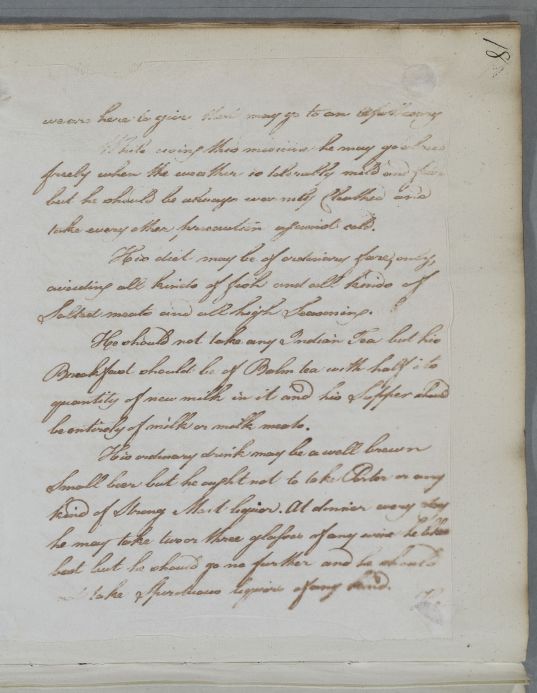 18
we are here to give them may go to an Apothecary
While using this medicine he may go abroad
freely when the weather is tolerably mild and fair
but he should be always warmly Cloathed and
take every other precaution against cold.
His diet may be of ordinary fare, only,
avoiding all kinds of fish and all kinds of
Salted meats and all high Seasoning.
He should not take any Indian Tea but his
Breakfast should be of Balm tea with half its
quantity of new milk in it and his Supper should
be entirely of milk or milk meats.
His ordinary drink may be a well brewn
Small beer but he ought not to take Porter or any
kind of Strong Malt liquor. At dinner every day
he may take two or three glasses of any wine he likes
best but he should go no further and he should
take Spirituous liquor of any kind.